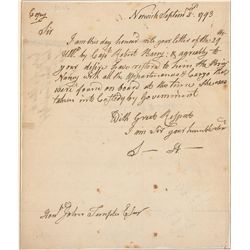 Copy
Norwich Septem 2d. 1793
Sir
I am this day honord with your letter of the 29th
Ulto. by Capt. Robert Barry, & agreably to
your desire have restored to him the Brig
Nancy with all the Appurtenances & Cargo that
were found on board at the time She was
taken into Custody by Government
With Great Respect
I am Sir your humble
John Temple Esqr